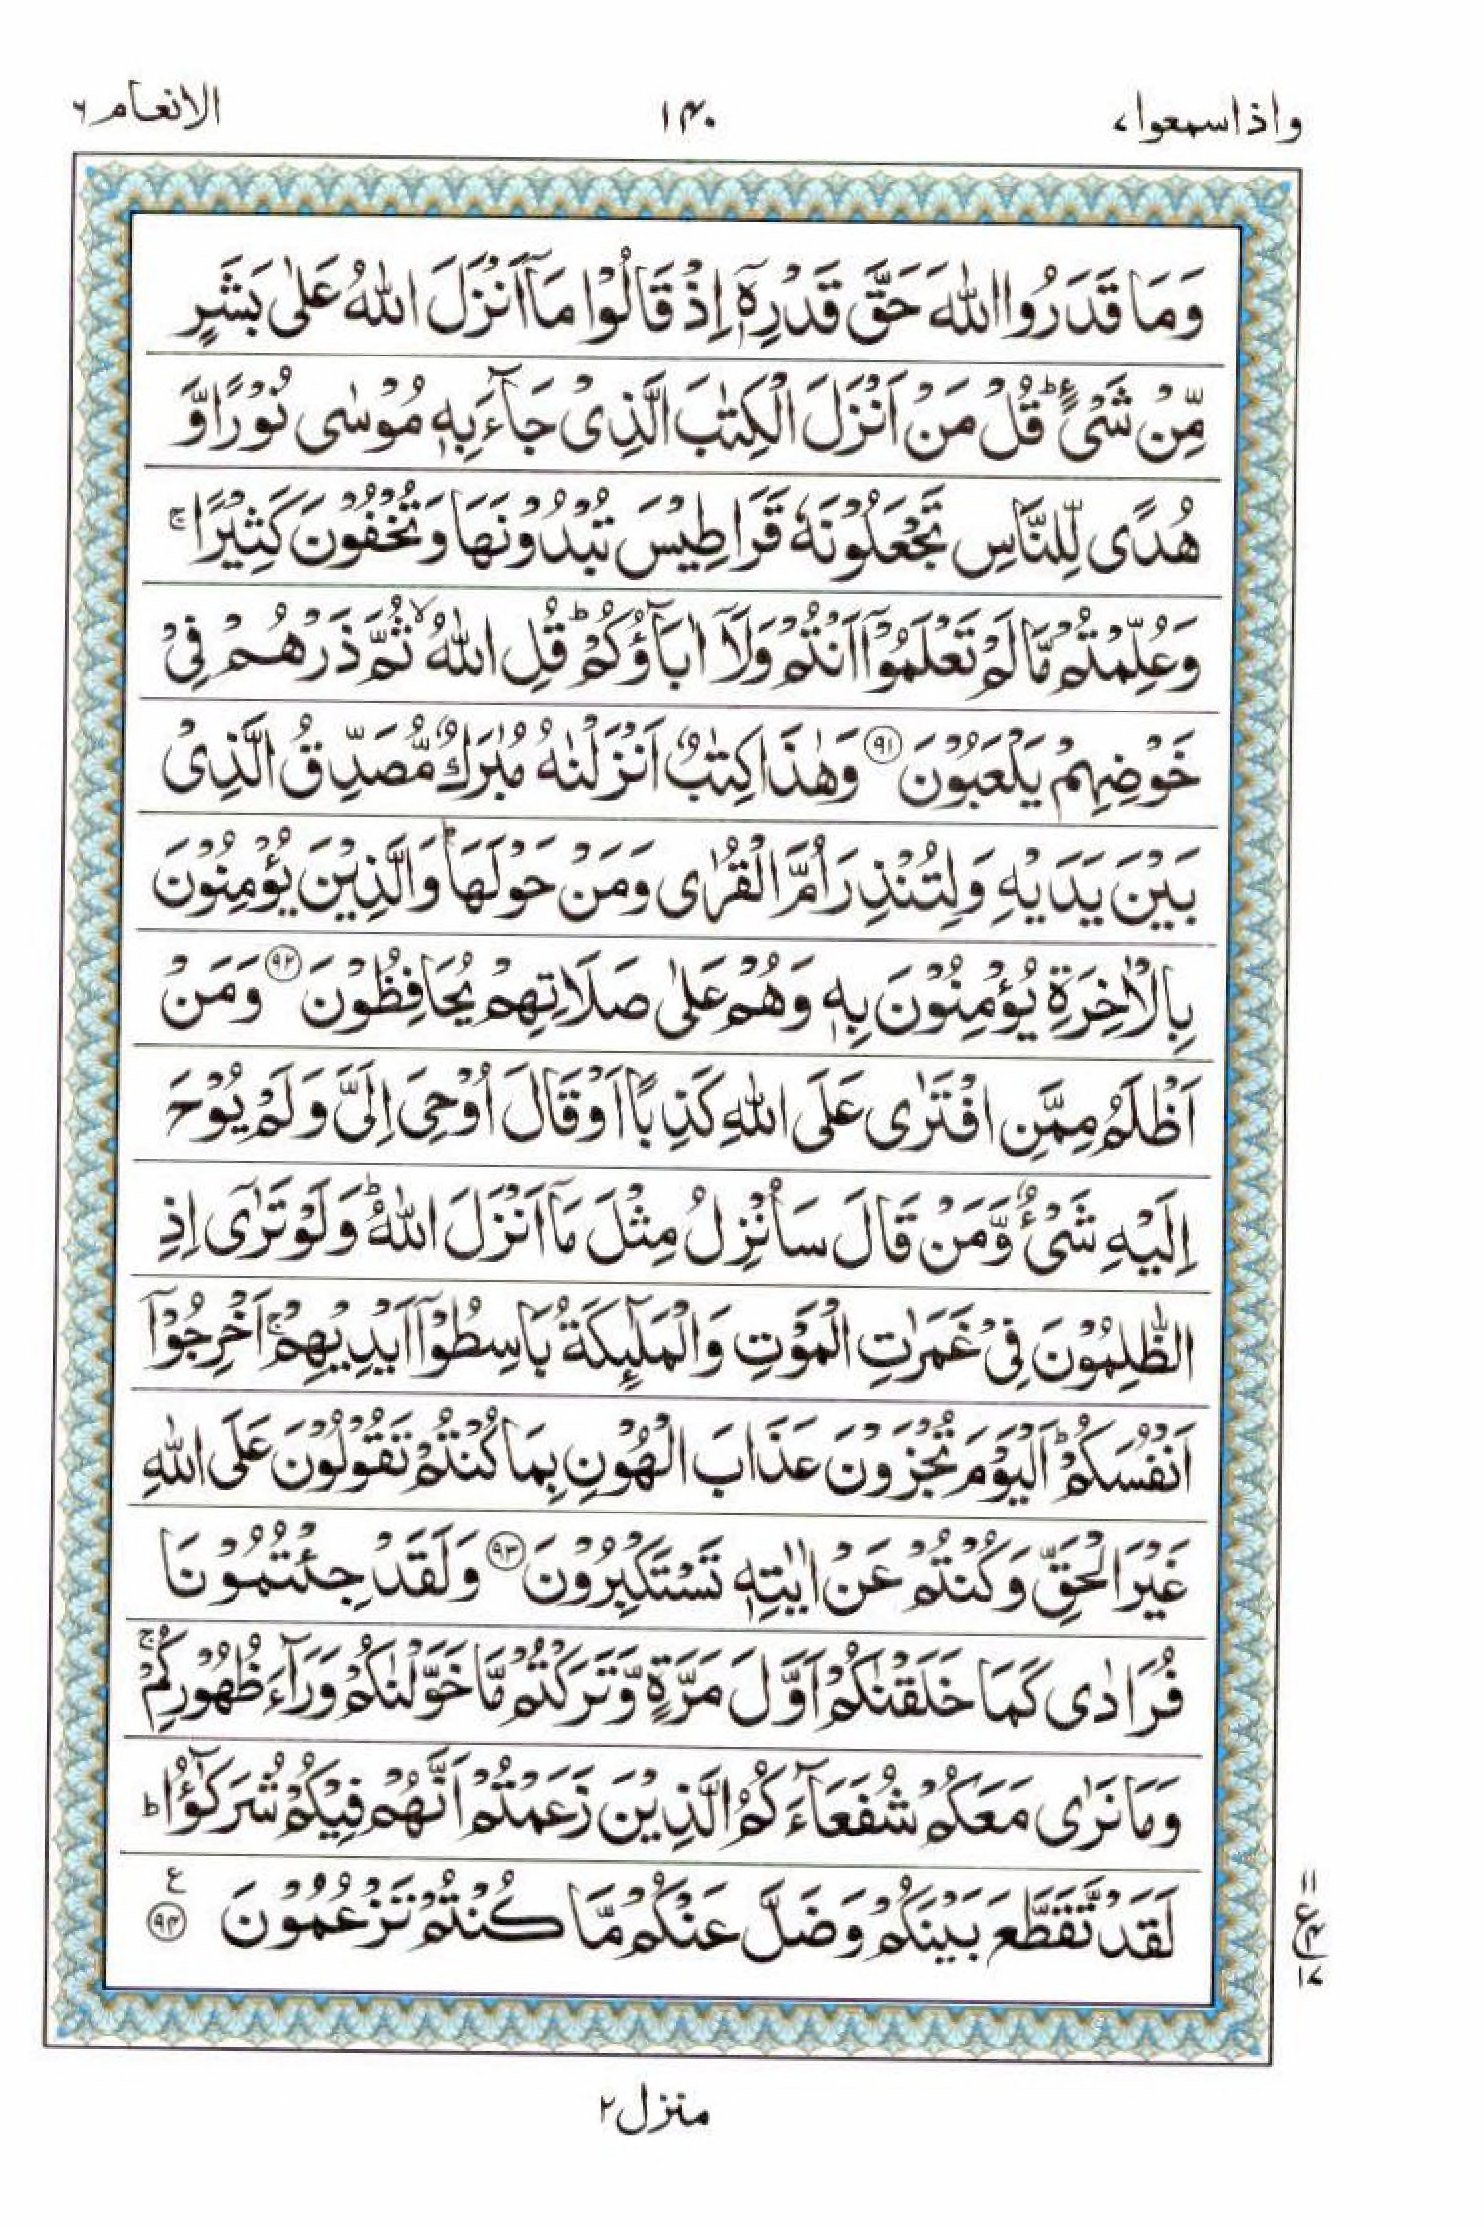 واذاسمعوا۷ ۱۴۰ الانعام۶
وَمَا قَدَرُوا اللّٰهَ حَقَّ قَدْرِهٖۤ اِذْ قَالُوْا مَاۤ اَنْزَلَ اللّٰهُ عَلٰى بَشَرٍ
مِّنْ شَىْءٍ ؕ قُلْ مَنْ اَنْزَلَ الْكِتٰبَ الَّذِىْ جَآءَ بِهٖ مُوْسٰى نُوْرًا وَّ
هُدًى لِّلنَّاسِ تَجْعَلُوْنَهٗ قَرَاطِيْسَ تُبْدُوْنَهَا وَتُخْفُوْنَ كَثِيْرًا ۚ
وَعُلِّمْتُمْ مَّا لَمْ تَعْلَمُوْۤا اَنْتُمْ وَلَاۤ اٰبَآؤُكُمْ ؕ قُلِ اللّٰهُ ۙ ثُمَّ ذَرْهُمْ فِىْ
خَوْضِهِمْ يَلْعَبُوْنَ ﴿۹۱﴾ وَهٰذَا كِتٰبٌ اَنْزَلْنٰهُ مُبٰرَكٌ مُّصَدِّقُ الَّذِىْ
بَيْنَ يَدَيْهِ وَلِتُنْذِرَ اُمَّ الْقُرٰى وَمَنْ حَوْلَهَا ؕ وَالَّذِيْنَ يُؤْمِنُوْنَ
بِالْاٰخِرَةِ يُؤْمِنُوْنَ بِهٖ وَهُمْ عَلٰى صَلَاتِهِمْ يُحَافِظُوْنَ ﴿۹۲﴾ وَمَنْ
اَظْلَمُ مِمَّنِ افْتَرٰى عَلَى اللّٰهِ كَذِبًا اَوْ قَالَ اُوْحِىَ اِلَىَّ وَلَمْ يُوْحَ
اِلَيْهِ شَىْءٌ وَّمَنْ قَالَ سَاُنْزِلُ مِثْلَ مَاۤ اَنْزَلَ اللّٰهُ ؕ وَلَوْ تَرٰٓى اِذِ
الظّٰلِمُوْنَ فِىْ غَمَرٰتِ الْمَوْتِ وَالْمَلٰٓئِكَةُ بَاسِطُوْۤا اَيْدِيْهِمْ ۚ اَخْرِجُوْۤا
اَنْفُسَكُمْ ؕ اَلْيَوْمَ تُجْزَوْنَ عَذَابَ الْهُوْنِ بِمَا كُنْتُمْ تَقُوْلُوْنَ عَلَى اللّٰهِ
غَيْرَ الْحَقِّ وَكُنْتُمْ عَنْ اٰيٰتِهٖ تَسْتَكْبِرُوْنَ ﴿۹۳﴾ وَلَقَدْ جِئْتُمُوْنَا
فُرَادٰى كَمَا خَلَقْنٰكُمْ اَوَّلَ مَرَّةٍ وَّتَرَكْتُمْ مَّا خَوَّلْنٰكُمْ وَرَآءَ ظُهُوْرِكُمْ ۚ
وَمَا نَرٰى مَعَكُمْ شُفَعَآءَكُمُ الَّذِيْنَ زَعَمْتُمْ اَنَّهُمْ فِيْكُمْ شُرَكٰٓؤُا ؕ
لَقَدْ تَّقَطَّعَ بَيْنَكُمْ وَضَلَّ عَنْكُمْ مَّا كُنْتُمْ تَزْعُمُوْنَ ﴿۹۴﴾ ع
۱۱
ع
۴
۱۷
منزل۲